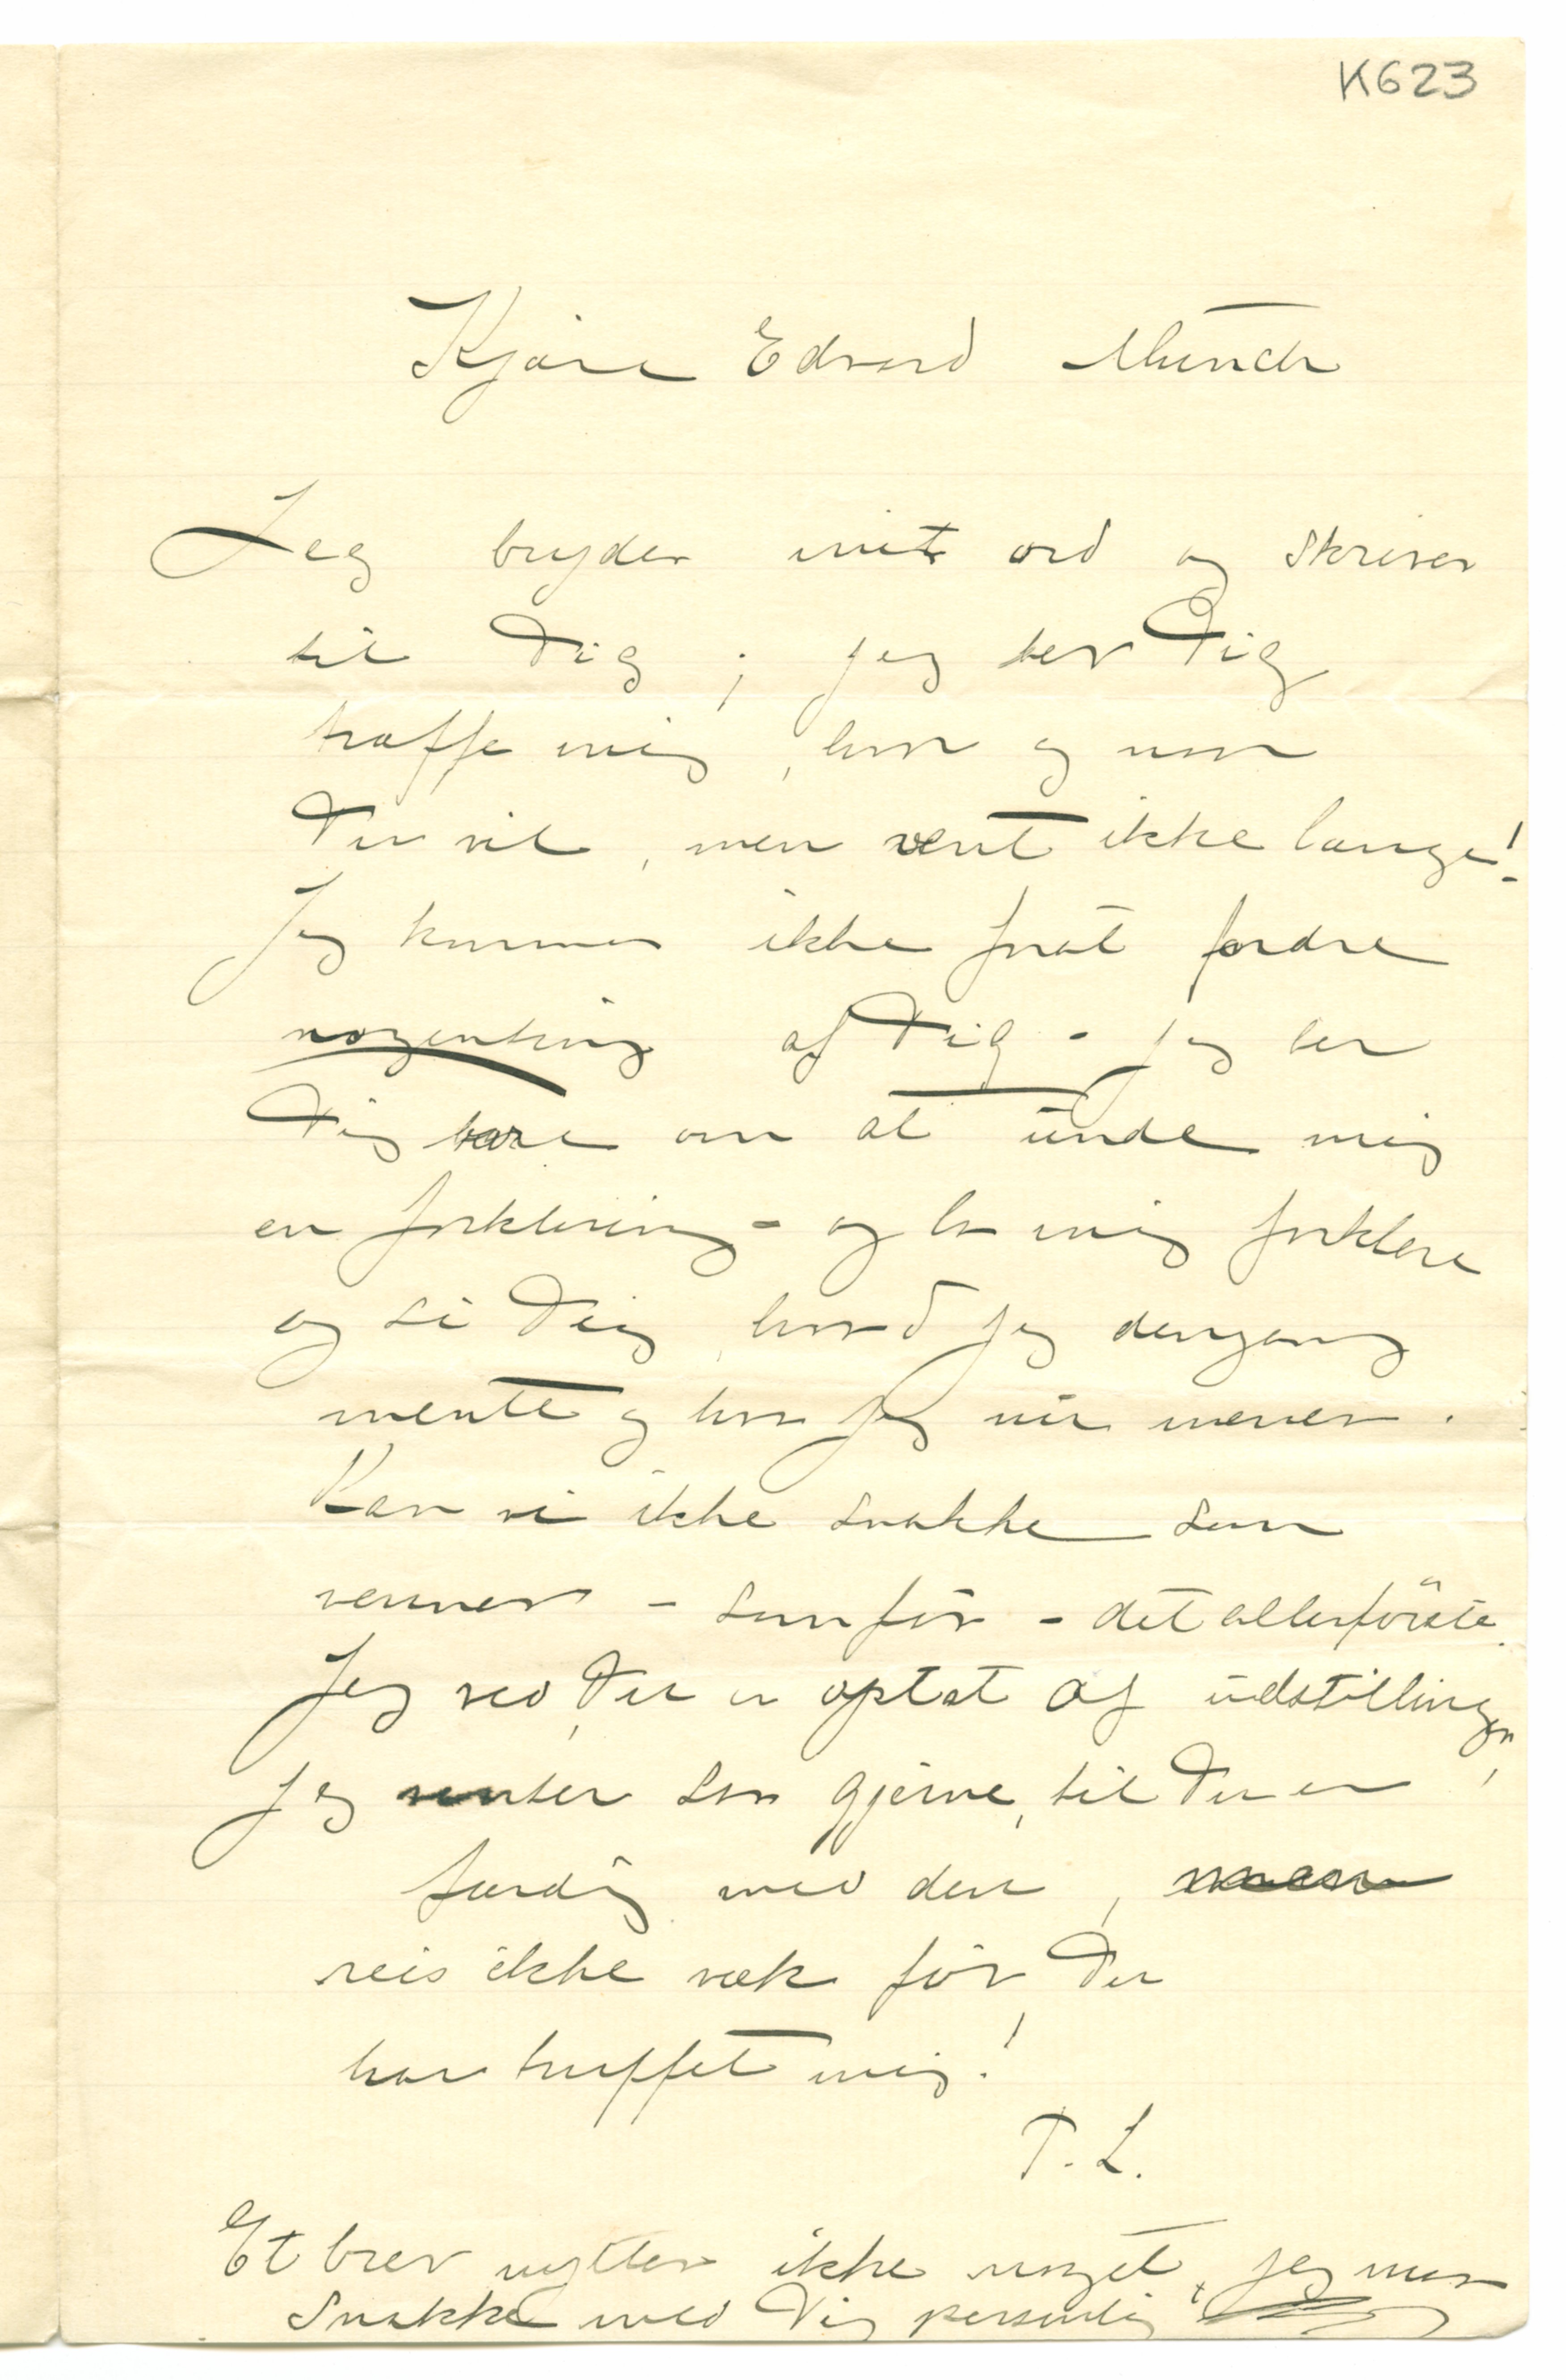 K623
Kjære Edvard Munch
Jeg bryder mit ord og skriver
til Dig ; jeg ber Dig
træffe mig, hvor og naar
Du vil, men vent ikke længe!
Jeg kommer ikke forat fordre
nogenting af Dig - jeg ber
Dig bare om at unde mig
en forklaring - og la mig forklare
og si Dig, hvad jeg dengang
mente og hva jeg nu mener.
Kan vi ikke snakke som
venner - som før - det allerførste.
Jeg ved, Du er optat af udstillingen,
jeg venter saa gjerne, til Du er
færdig med den, men
reis ikke væk før, Du
har truffet mig!
T. L.
Et brev nytter ikke noget, jeg maa
snakke med Dig personlig